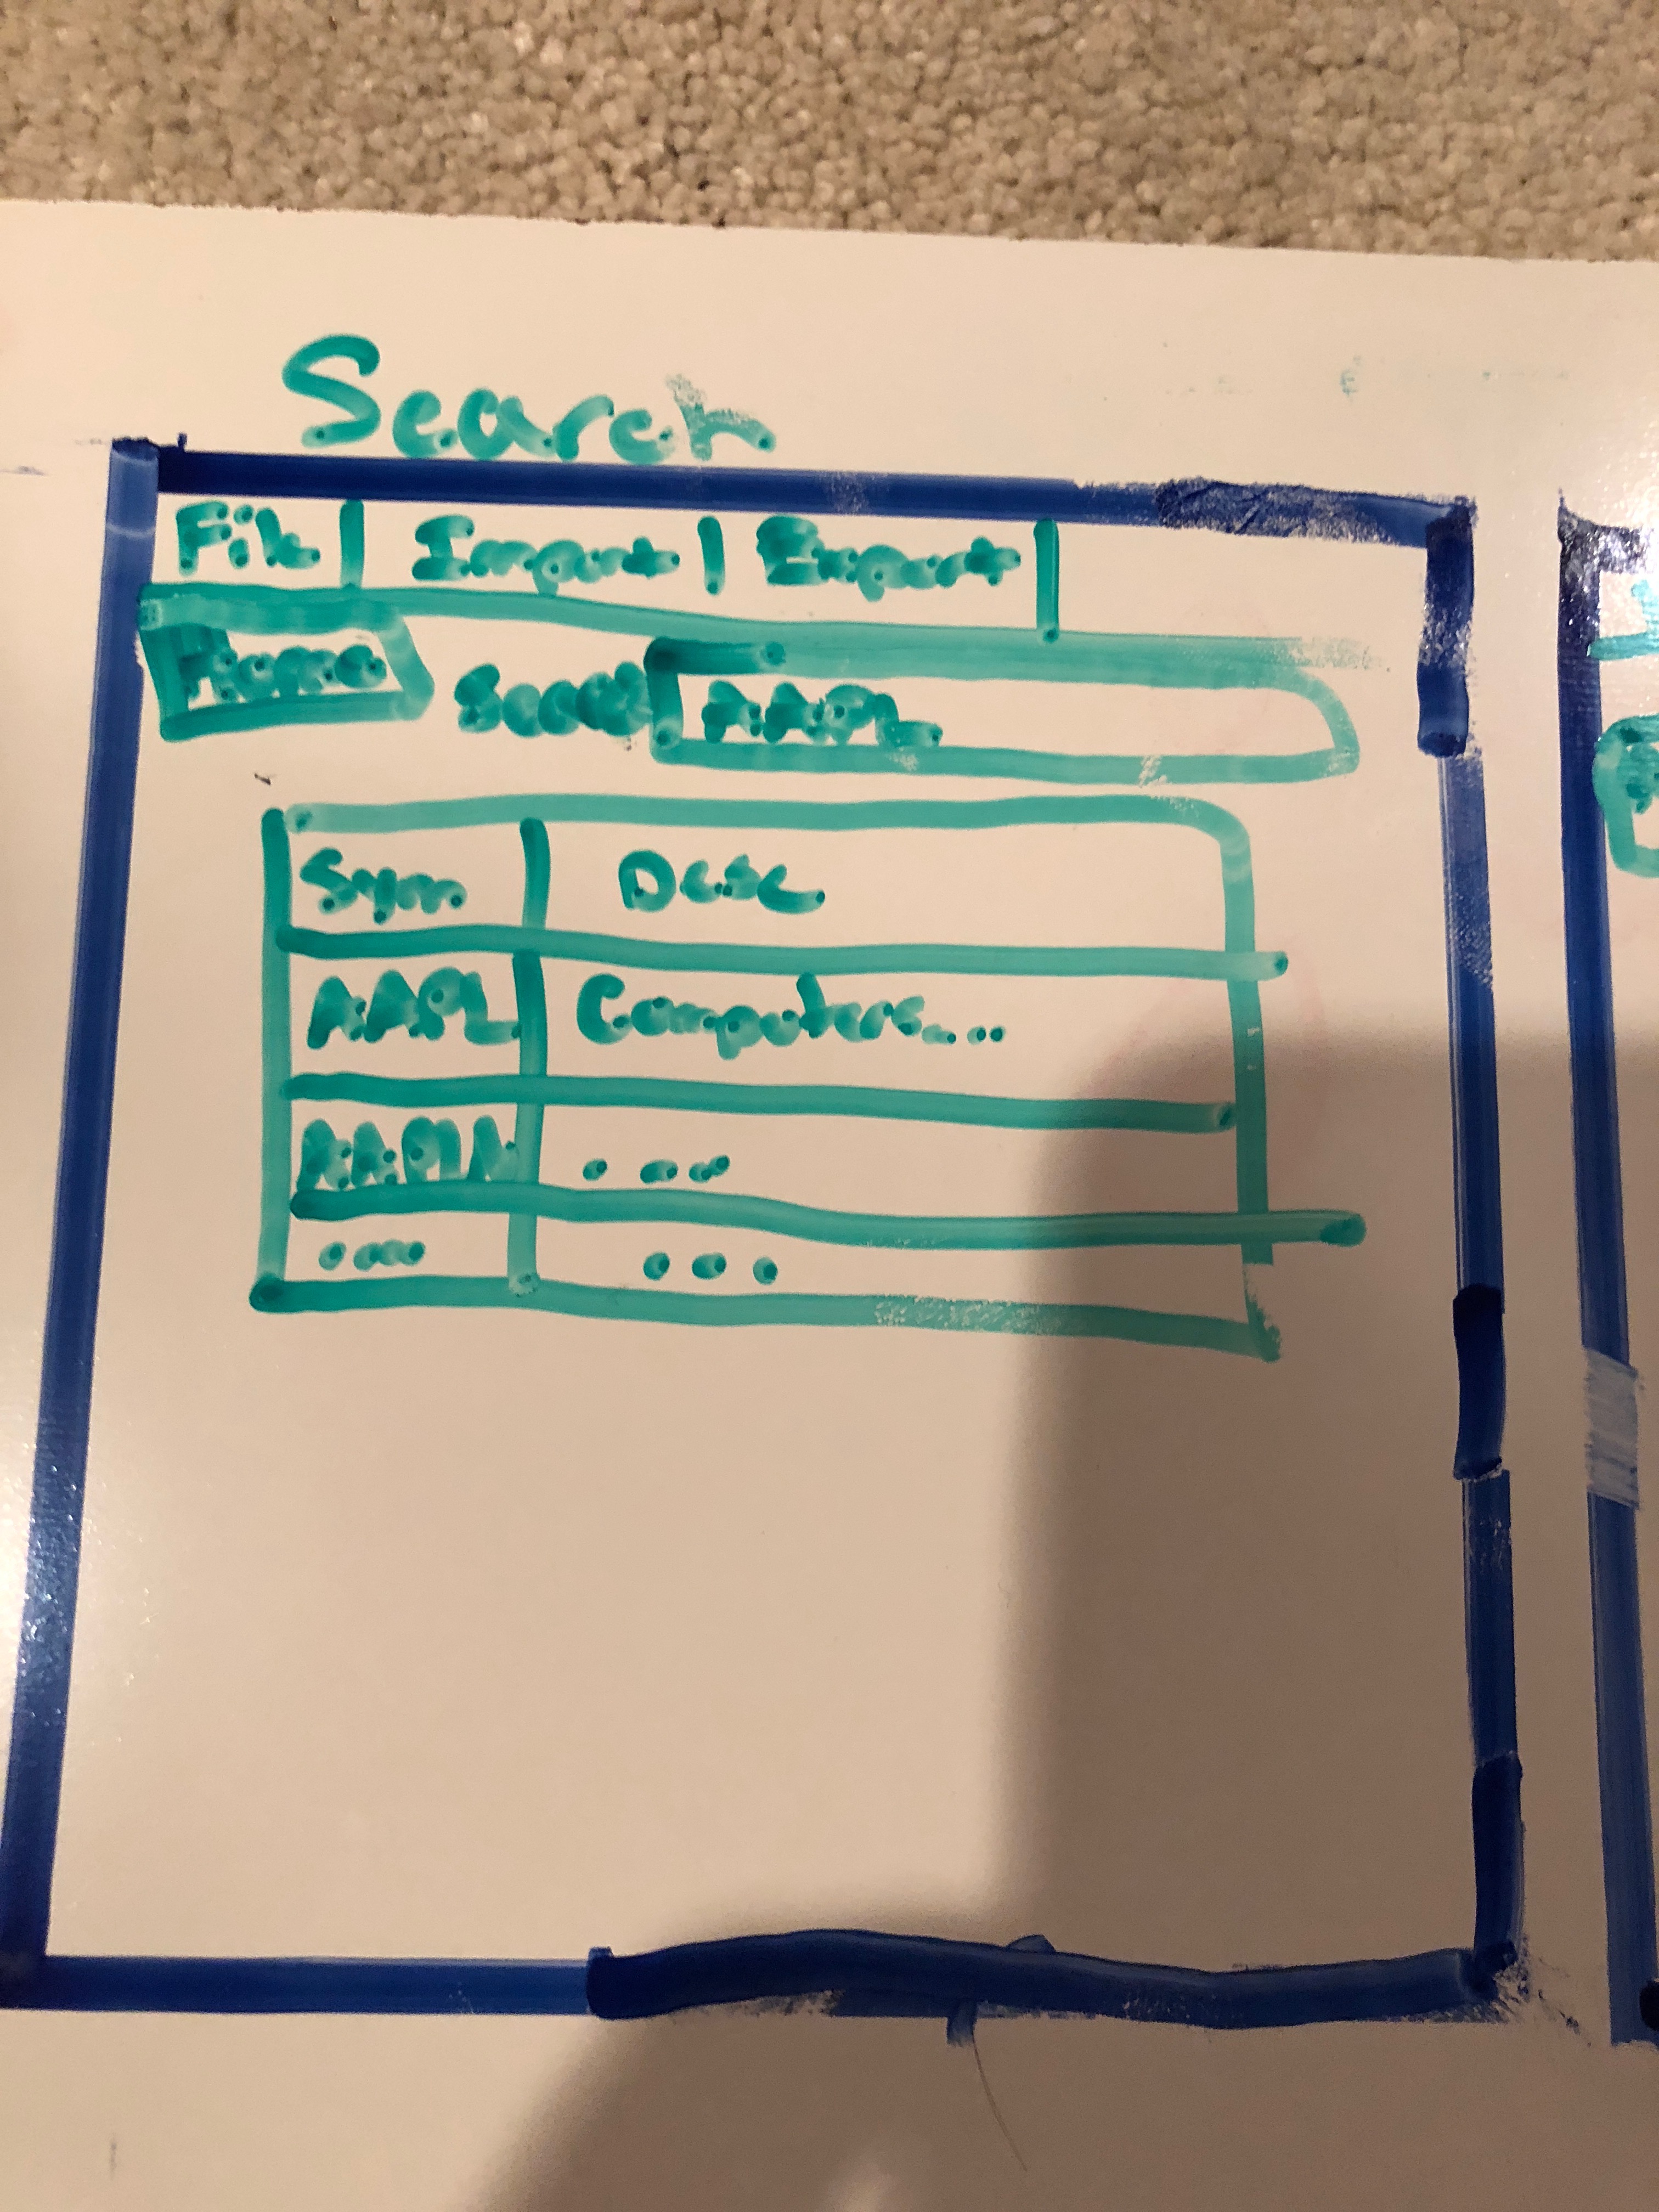 Search
File | Import | Export |
Home Search AAPL
Sym Desc
AAPL Computers....
....
.... ...